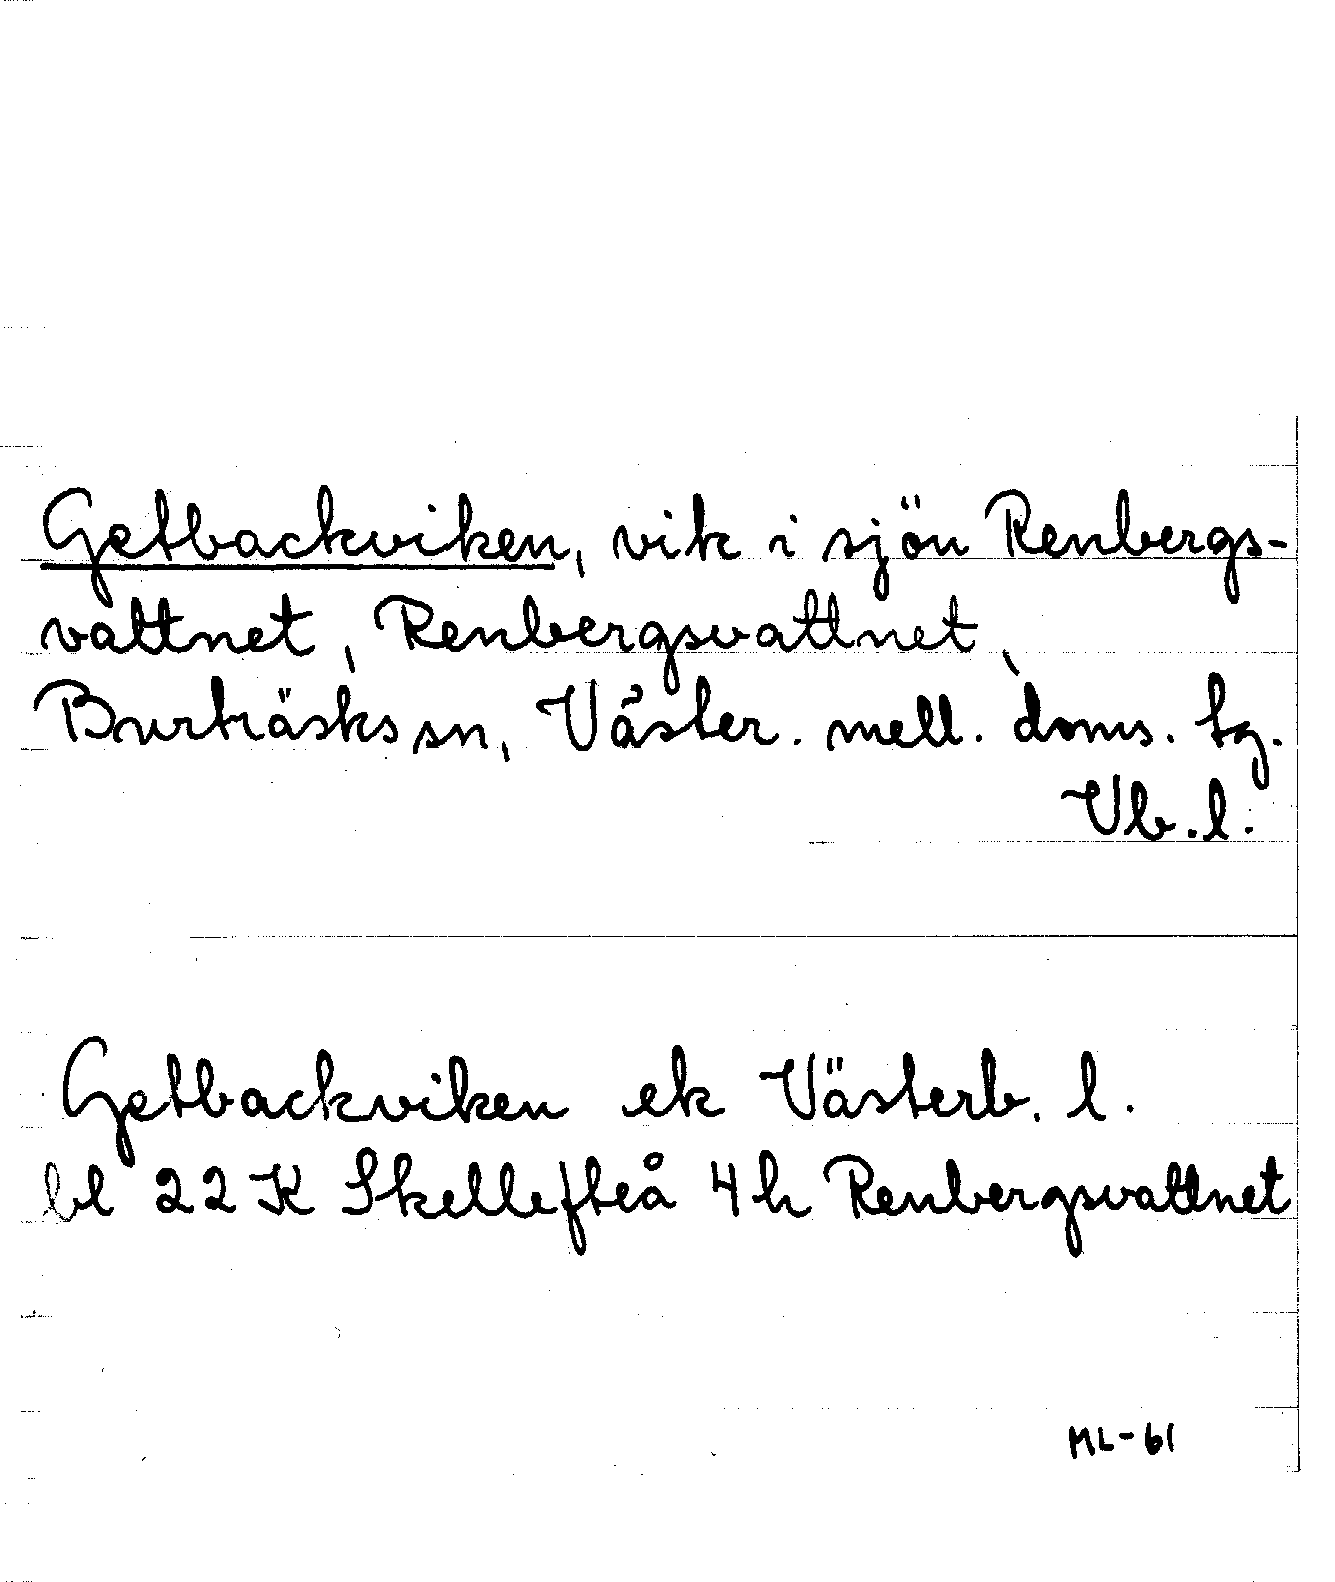 Getbackviken, vik i sjön Renbergs-
vattnet, Renbergsvattnet,
Burträsks sn, Väster. mell. doms. tg.
Vb. l.
Getbackviken ek Västerb. l.
bl 22 K Skellefteå 4 h Renbergsvattnet
ML-61